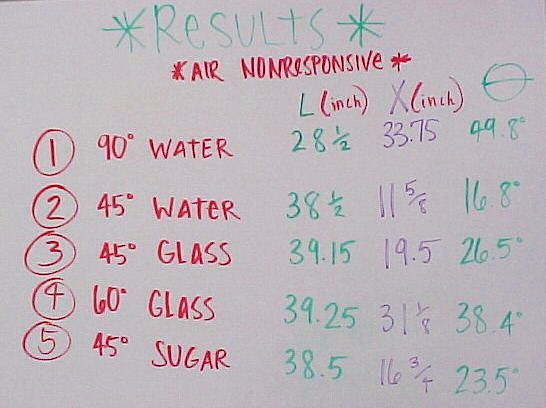 *RESULTS*
*AIR NONRESPONSIVE*
L (inch) X (inch) θ
1 90° WATER 28 1/2 33.75 49.8°
2 45° WATER 38 1/2 11 5/8 16.8°
3 45° GLASS 39.15 19.5 26.5°
4 60° GLASS 39.25 31 1/8 38.4°
5 45° SUGAR 38.5 16 3/4 23.5°